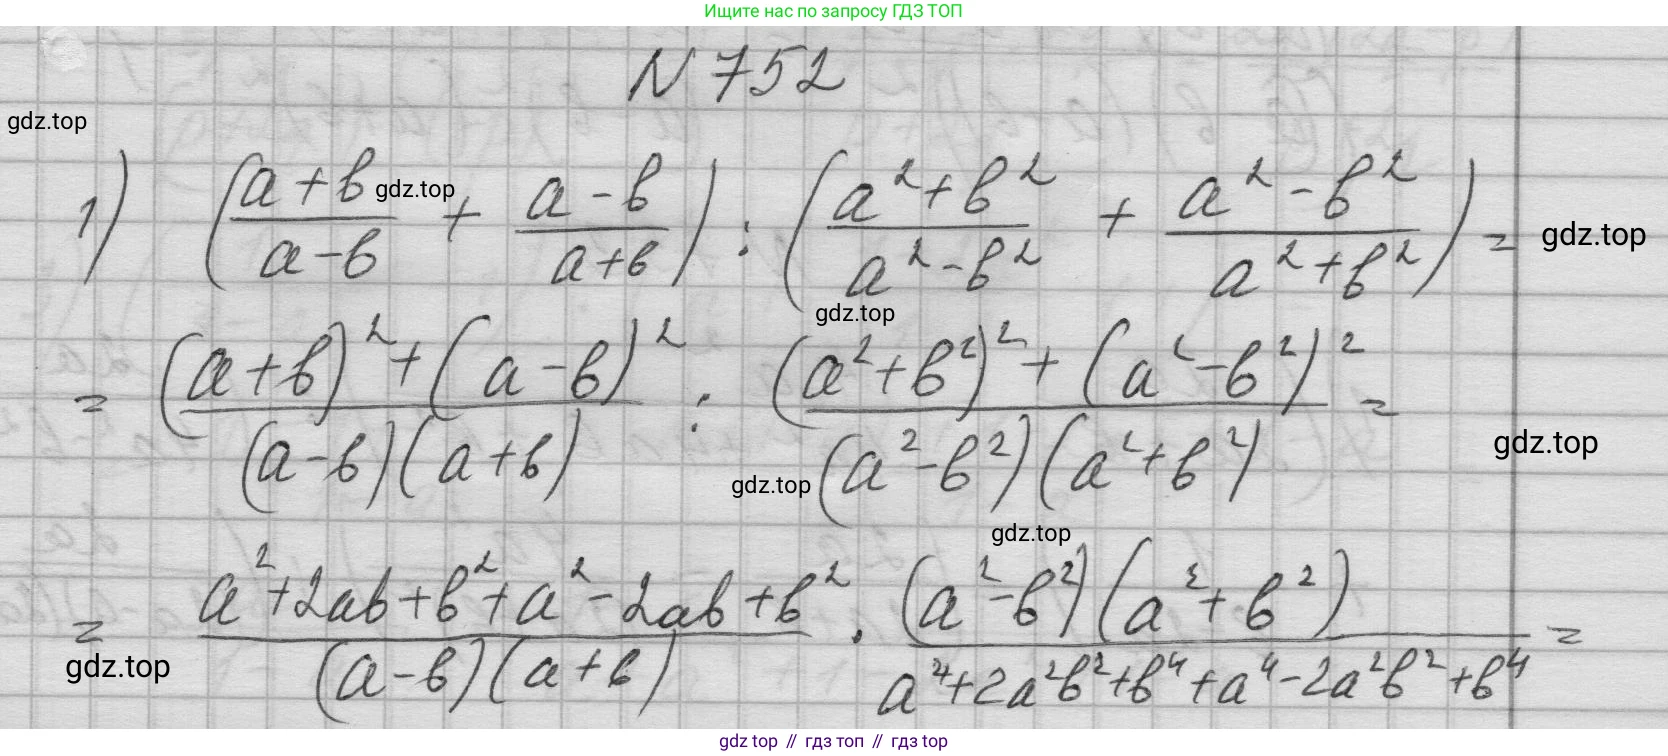 Ищите нас по запросу ГДЗ ТОП
N 752
gdz.top
1) ((a+b)/(a-b) + (a-b)/(a+b)) : ((a²+b²)/(a²-b²) + (a²-b²)/(a²+b²)) =
gdz.top
gdz.top
gdz.top
= ((a+b)²+(a-b)²)/((a-b)(a+b)) : ((a²+b²)²+(a²-b²)²)/((a²-b²)(a²+b²)) =
gdz.top
gdz.top
gdz.top
= (a²+2ab+b²+a²-2ab+b²)/((a-b)(a+b)) · ((a²-b²)(a²+b²))/(a⁴+2a²b²+b⁴+a⁴-2a²b²+b⁴) =
gdz.top
gdz top // гдз топ // gdz top